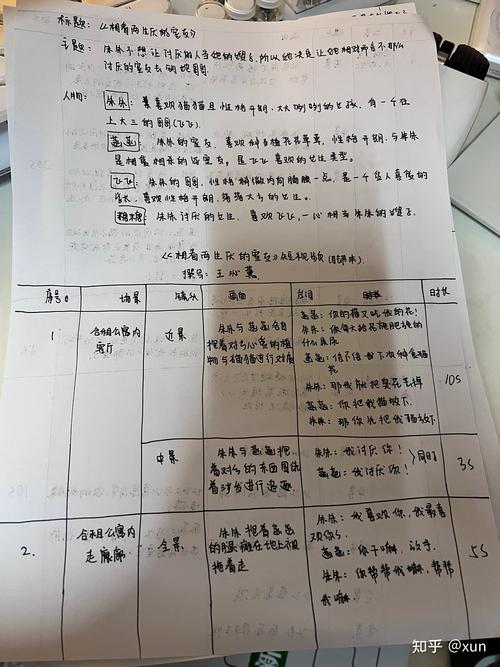 标题：《相看两生厌的室友》
主题：朱朱不想让讨厌的人当她的嫂子，所以她决定让她相对而言不那么
讨厌的室友去确她哥。
人物：朱朱：喜欢猫猫且性格开朗，大大咧咧的女孩，有一个在
上大三的哥哥(飞飞)
蓝蓝：朱朱的室友，喜欢种植花花草草，性格开朗，与朱朱
是相爱相杀的好室友，是飞飞喜欢的女生类型。
飞飞：朱朱的哥哥，性格稍微内向腼腆一点，是一个受人喜爱的
学长，喜欢性格开朗，落落大方的女生。
糖糖：朱朱讨厌的女生，喜欢飞飞，一心想当朱朱的嫂子。
《相看两生厌的室友》短视频(脚本)
撰写：王心
序号 场景 镜头 画面 台词 时长
1 合租公寓内
客厅
近景
朱朱与蓝蓝各自
抱着对方心爱的植
物与猫猫进行对质
蓝蓝：你的猫又吃我的花！
朱朱：你每天给花施肥施的
什么东东
蓝蓝：信不信我下次种食猫
花
朱朱：那我就把臭花丢掉
蓝蓝：你把我猫放下
朱朱：那你先把我猫放下
10s
中景
朱朱与蓝蓝抱
着对方的东西围绕
着沙发进行追逐
朱朱：我讨厌你！
蓝蓝：我讨厌你！
同时
3s
2. 合租公寓内
走廊
全景
朱朱抱着蓝蓝
的腿瘫在地上被
拖着走
朱朱：我喜欢你，我最喜
欢你了
蓝蓝：你干嘛，放手
朱朱：你帮帮我嘛，帮帮
我嘛
5s
知乎 @xun